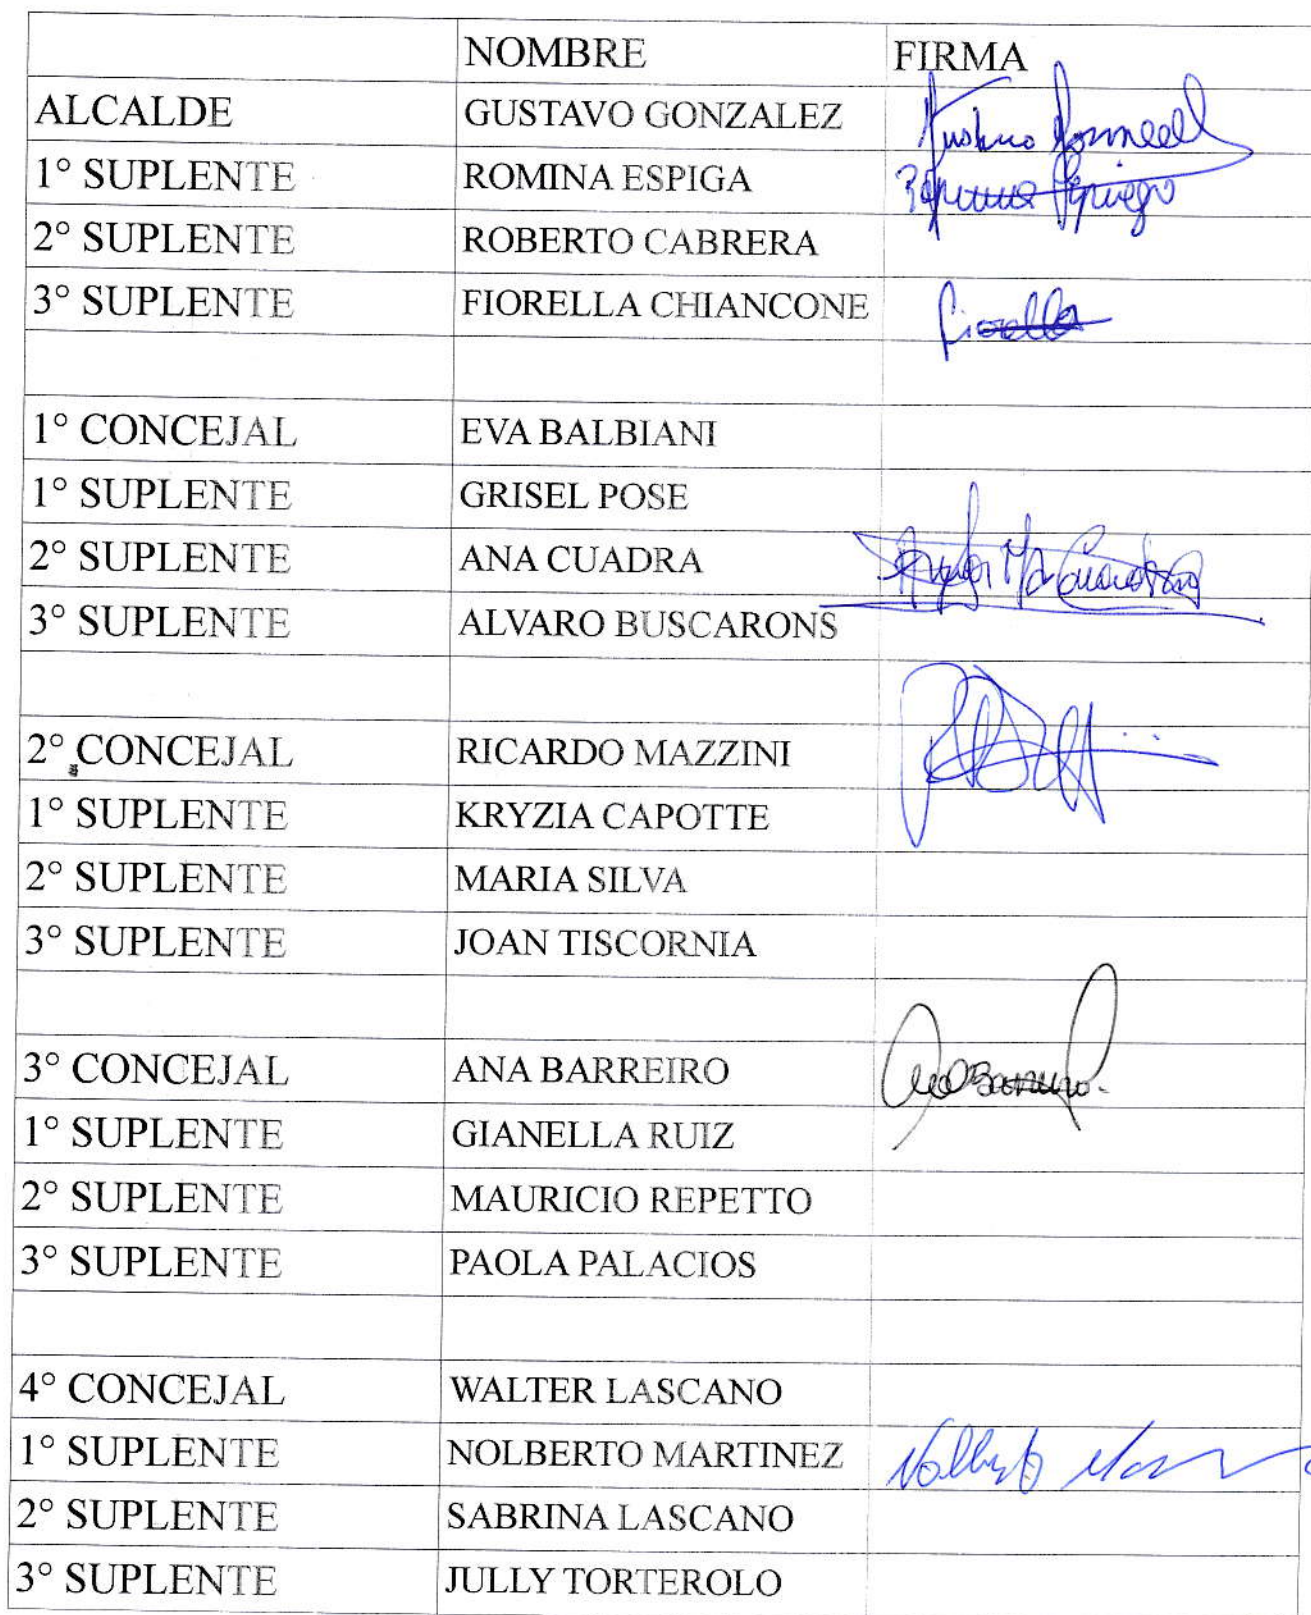 NOMBRE FIRMA
ALCALDE GUSTAVO GONZALEZ
1° SUPLENTE ROMINA ESPIGA
2° SUPLENTE ROBERTO CABRERA
3° SUPLENTE FIORELLA CHIANCONE Fiorella
1° CONCEJAL EVA BALBIANI
1° SUPLENTE GRISEL POSE
2° SUPLENTE ANA CUADRA
3° SUPLENTE ALVARO BUSCARONS
2° CONCEJAL RICARDO MAZZINI
1° SUPLENTE KRYZIA CAPOTTE
2° SUPLENTE MARIA SILVA
3° SUPLENTE JOAN TISCORNIA
3° CONCEJAL ANA BARREIRO
1° SUPLENTE GIANELLA RUIZ
2° SUPLENTE MAURICIO REPETTO
3° SUPLENTE PAOLA PALACIOS
4° CONCEJAL WALTER LASCANO
1° SUPLENTE NOLBERTO MARTINEZ Nolberto
2° SUPLENTE SABRINA LASCANO
3° SUPLENTE JULLY TORTEROLO